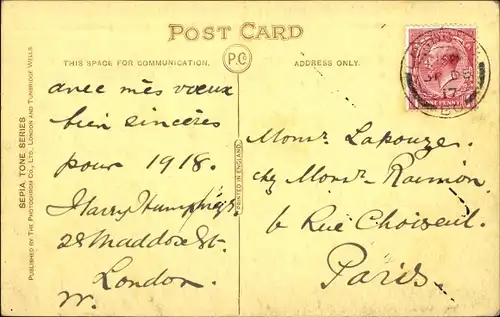 POST CARD
P.C°
THIS SPACE FOR COMMUNICATION.
ADDRESS ONLY.
avec mès vœux
bien sincères
pour 1918.
Harry Humphrys.
28 Maddox St.
London.
W.
Monsr. Lapouze.
chz Monsr. Ramon,
6 Rue Choiseul.
Paris.
SEPIA TONE SERIES
PUBLISHED BY THE PHOTOCHROM CO., LTD., LONDON AND TUNBRIDGE WELLS
PRINTED IN ENGLAND
ONE PENNY
17